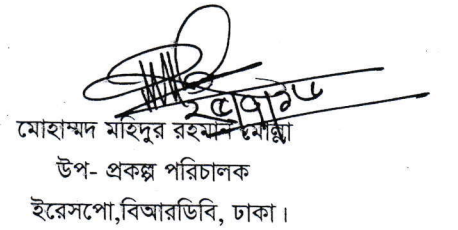 মোহাম্মদ মহিদুর রহমান মোল্লা
উপ- প্রকল্প পরিচালক
ইরেসপো,বিআরডিবি, ঢাকা।